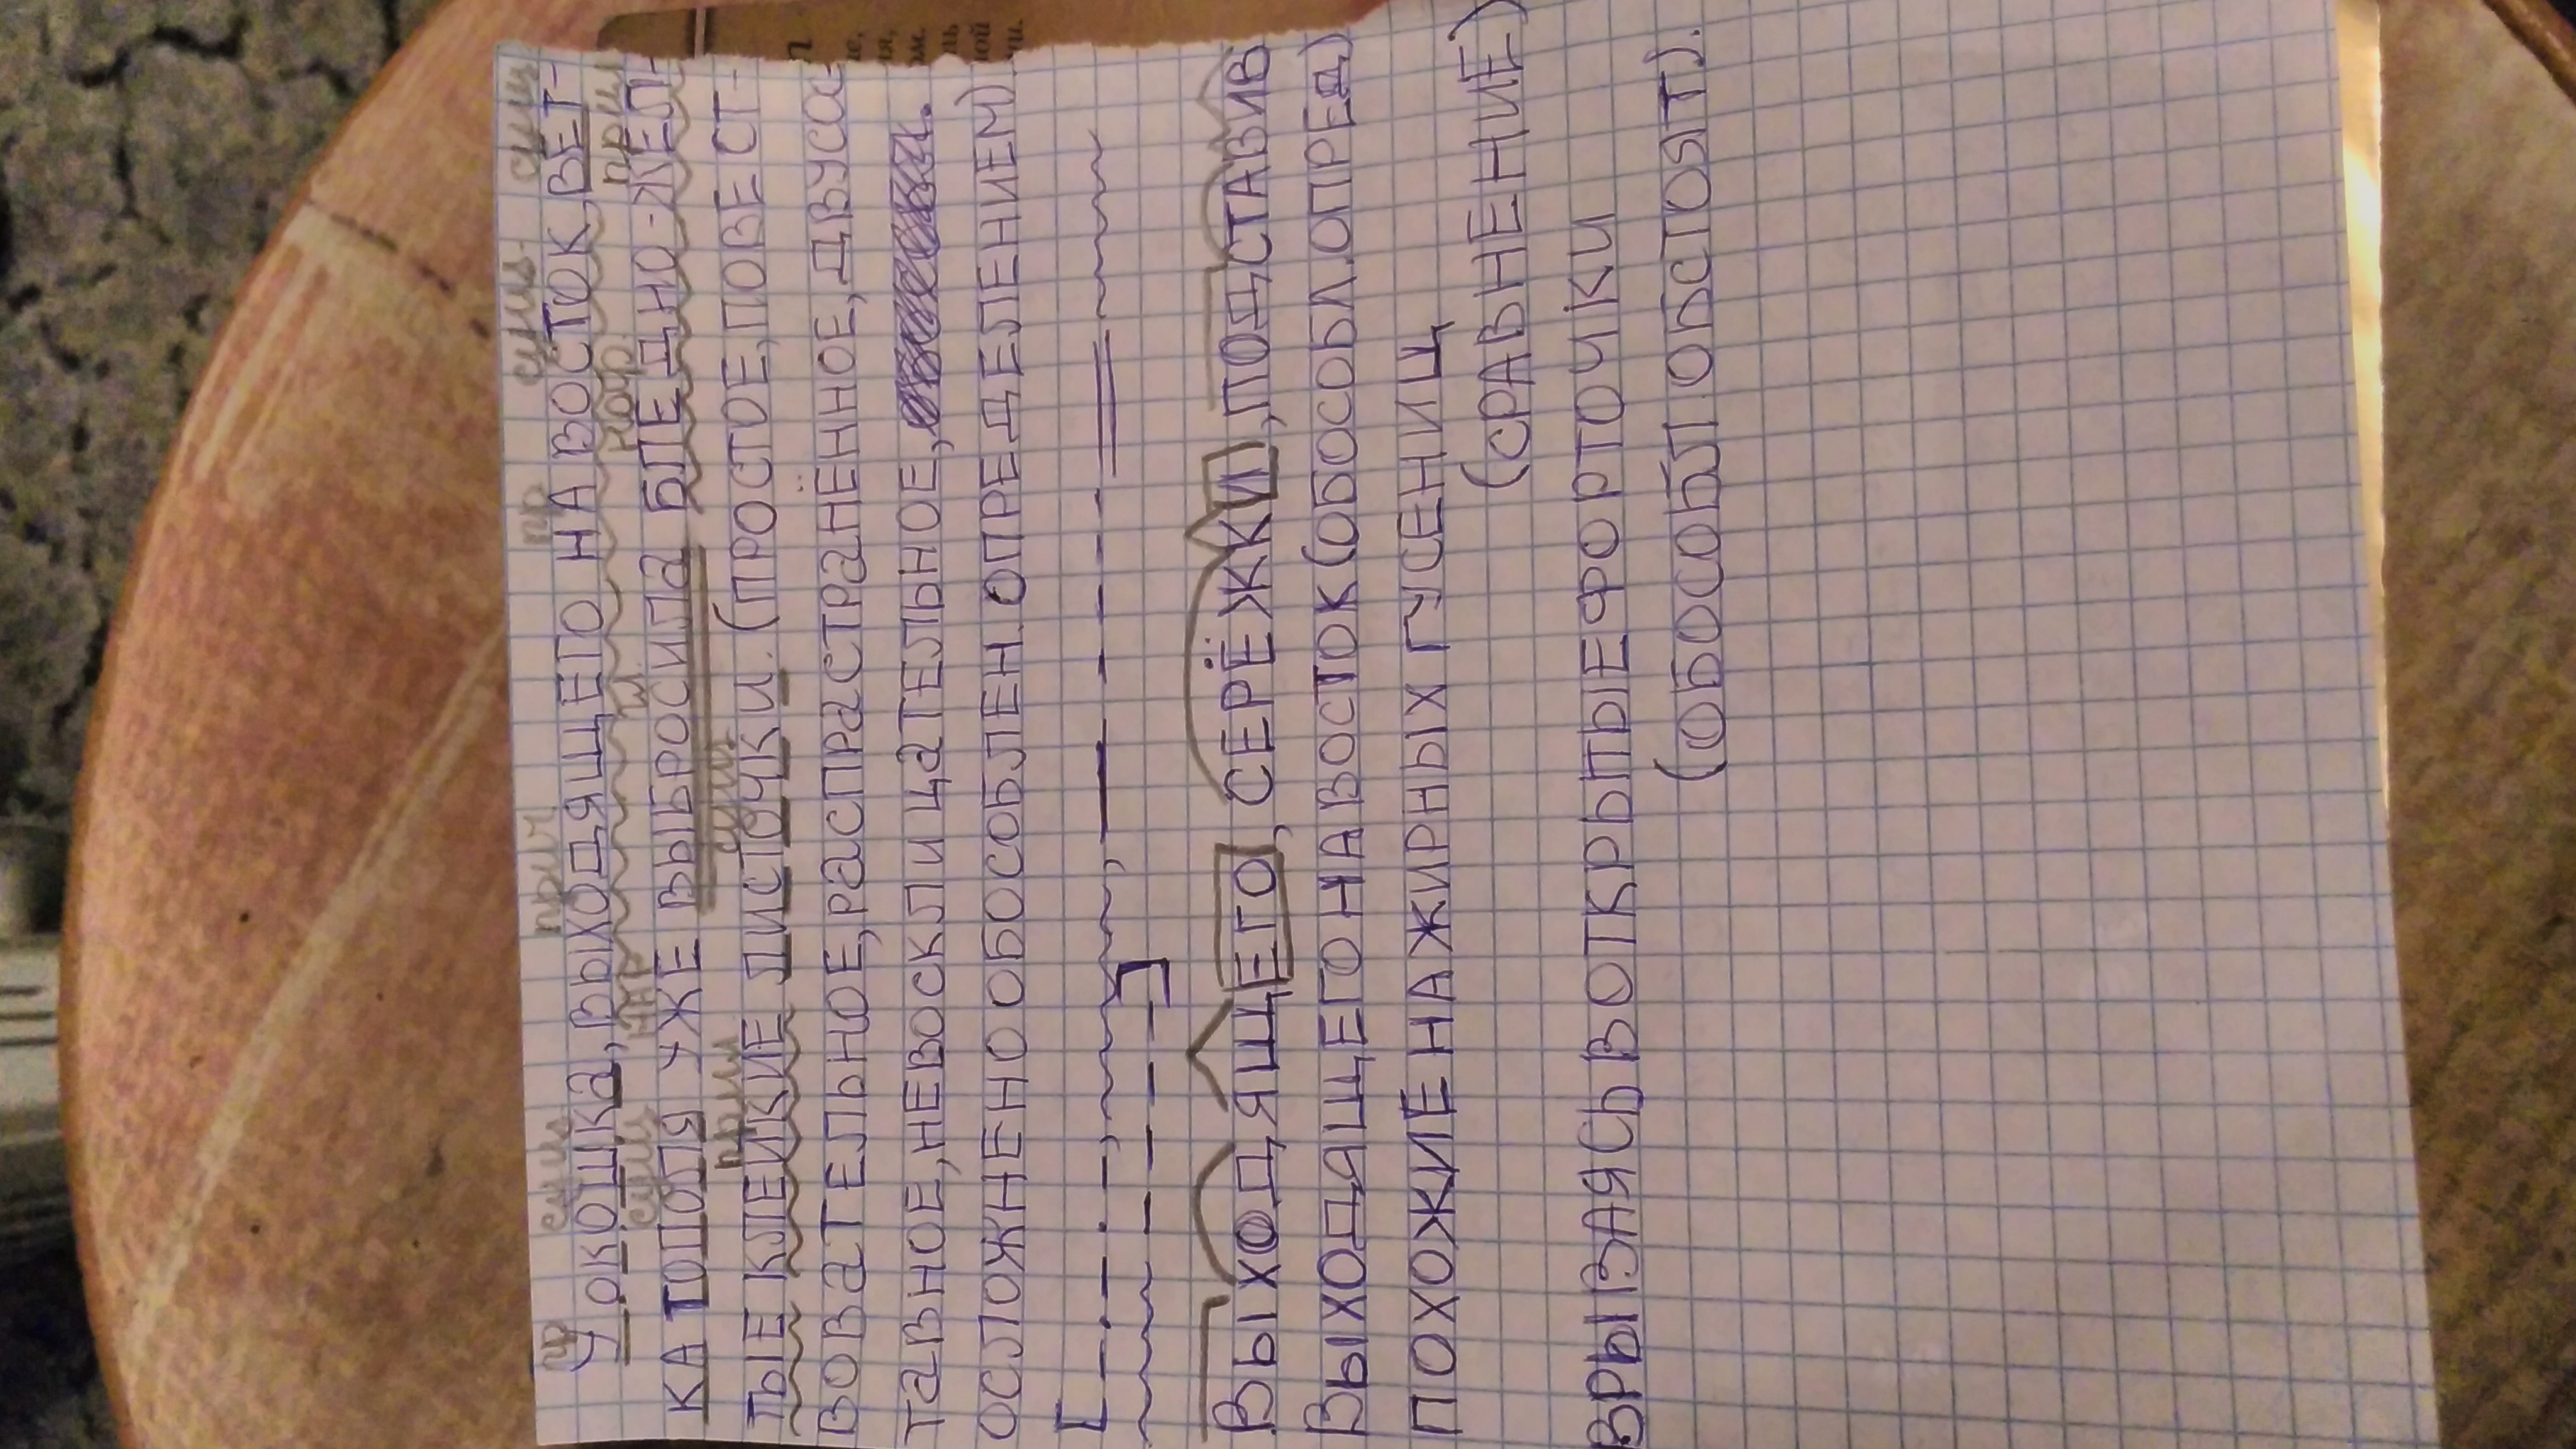 пр сущ прич пр сущ. сущ
У ОКОШКА, ВЫХОДЯЩЕГО НА ВОСТОК, ВЕТ-
сущ нар гл. нар прил
КА ТОПОЛЯ УЖЕ ВЫБРОСИЛА БЛЕДНО-ЖЕЛ-
прил сущ
ТЫЕ КЛЕЙКИЕ ЛИСТОЧКИ. (ПРОСТОЕ, ПОВЕСТ-
ВОВАТЕЛЬНОЕ, РАСПРАСТРАНЁННОЕ, ДВУСО-
ТАВНОЕ, НЕВОСКЛИЦАТЕЛЬНОЕ,
ОСЛОЖНЕНО ОБОСОБЛЕН. ОПРЕДЕЛЕНИЕМ)
ВЫХОДЯЩЕГО, СЕРЁЖКИ, ПОДСТАВИВ
ВЫХОДЯЩЕГО НА ВОСТОК (ОБОСОБЛ. ОПРЕД)
ПОХОЖИЕ НА ЖИРНЫХ ГУСЕНИЦ
(СРАВНЕНИЕ)
ВРЫВАЯСЬ В ОТКРЫТЫЕ ФОРТОЧКИ
(ОБОСОБЛ. ОБСТОЯТ).